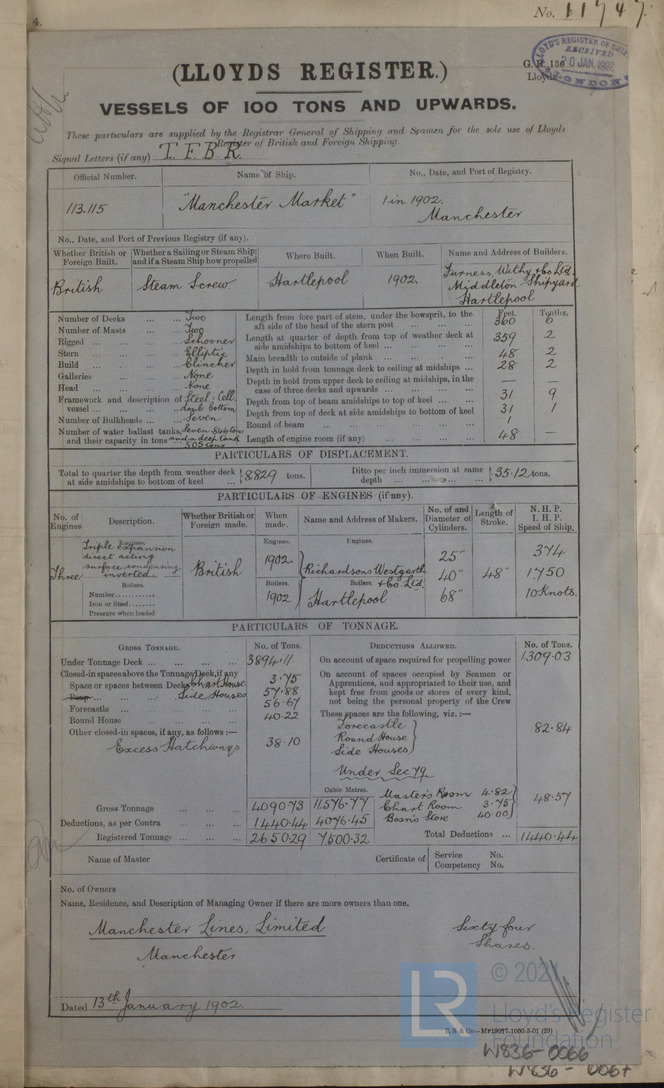 4.
No. 11747
LLOYD'S REGISTER OF
RECEIVED
20 JAN. 1902
LONDON
G. R. 136
Lloyds
(LLOYDS REGISTER.)
VESSELS OF 100 TONS AND UPWARDS.
These particulars are supplied by the Registrar General of Shipping and Seamen for the sole use of Lloyds
Register of British and Foreign Shipping.
Signal Letters (if any) T. F. B. R.
Official Number. Name of Ship. No., Date, and Port of Registry.
113.115 "Manchester Market" 1 in 1902.
Manchester
No., Date, and Port of Previous Registry (if any).
Whether British or Foreign Built. Whether a Sailing or Steam Ship; and if a Steam Ship how propelled Where Built. When Built. Name and Address of Builders.
British Steam Screw Hartlepool 1902. Furness, Withy & Co Ltd.
Middleton Shipyard
Hartlepool
Feet. Tenths.
Number of Decks ... ... Two
Number of Masts ... ... Two
Rigged ... Schooner
Stern ... Elliptic
Build ... Clincher
Galleries ... None
Head ... None
Framework and description of vessel ... Steel: Cell: doub bottom
Number of Bulkheads ... Seven
Number of water ballast tanks, and their capacity in tons Seven 844 tons and a deep tank 505 tons
Length from fore part of stem, under the bowsprit, to the aft side of the head of the stern post ... 360 6
Length at quarter of depth from top of weather deck at side amidships to bottom of keel ... 359 2
Main breadth to outside of plank ... 48 2
Depth in hold from tonnage deck to ceiling at midships ... 28 2
Depth in hold from upper deck to ceiling at midships, in the case of three decks and upwards ... — —
Depth from top of beam amidships to top of keel ... 31 9
Depth from top of deck at side amidships to bottom of keel 31 1
Round of beam ... 1
Length of engine room (if any) ... 48 —
PARTICULARS OF DISPLACEMENT.
Total to quarter the depth from weather deck at side amidships to bottom of keel ... 8829 tons. Ditto per inch immersion at same depth ... 35.12 tons.
PARTICULARS OF ENGINES (if any).
No. of Engines Description. Whether British or Foreign made. When made. Name and Address of Makers. No. of and Diameter of Cylinders. Length of Stroke. N. H. P. I. H. P. Speed of Ship.
Engines. Engines. Engines.
Three Triple Expansion direct acting surface condensing inverted British 1902 Richardsons Westgarth & Co Ltd. 25" 40" 68" 48" 374 1750 10 Knots.
Boilers. Boilers. Boilers.
Number...........
Iron or Steel........
Pressure when loaded
1902 Hartlepool
PARTICULARS OF TONNAGE.
GROSS TONNAGE. No. of Tons. DEDUCTIONS ALLOWED. No. of Tons.
Under Tonnage Deck ... 3894.11
Closed-in spaces above the Tonnage Deck, if any
Space or spaces between Decks Chart House 3.75
Poop Side Houses 57.88
Forecastle ... 56.67
Round House ... 40.22
Other closed-in spaces, if any, as follows :—
Excess Hatchways 38.10
On account of space required for propelling power 1309.03
On account of spaces occupied by Seamen or Apprentices, and appropriated to their use, and kept free from goods or stores of every kind, not being the personal property of the Crew
These spaces are the following, viz. :—
Forecastle
Round House
Side Houses
82.84
Under Sec 79.
Master's Room 4.82
Chart Room 3.75
Bosn's Store 40.00
48.57
Cubic Metres.
Gross Tonnage ... 4090.73 11576.77
Deductions, as per Contra ... 1440.44 4076.45
Registered Tonnage ... 2650.29 7500.32
Total Deductions ... 1440.44
Name of Master
Certificate of Service No.
Competency No.
No. of Owners
Name, Residence, and Description of Managing Owner if there are more owners than one.
Manchester Lines, Limited
Manchester
Sixty four
Shares.
Dated 13th January 1902
LR
© 2021
Lloyd's Register
Foundation
W836-0066
W836-0067